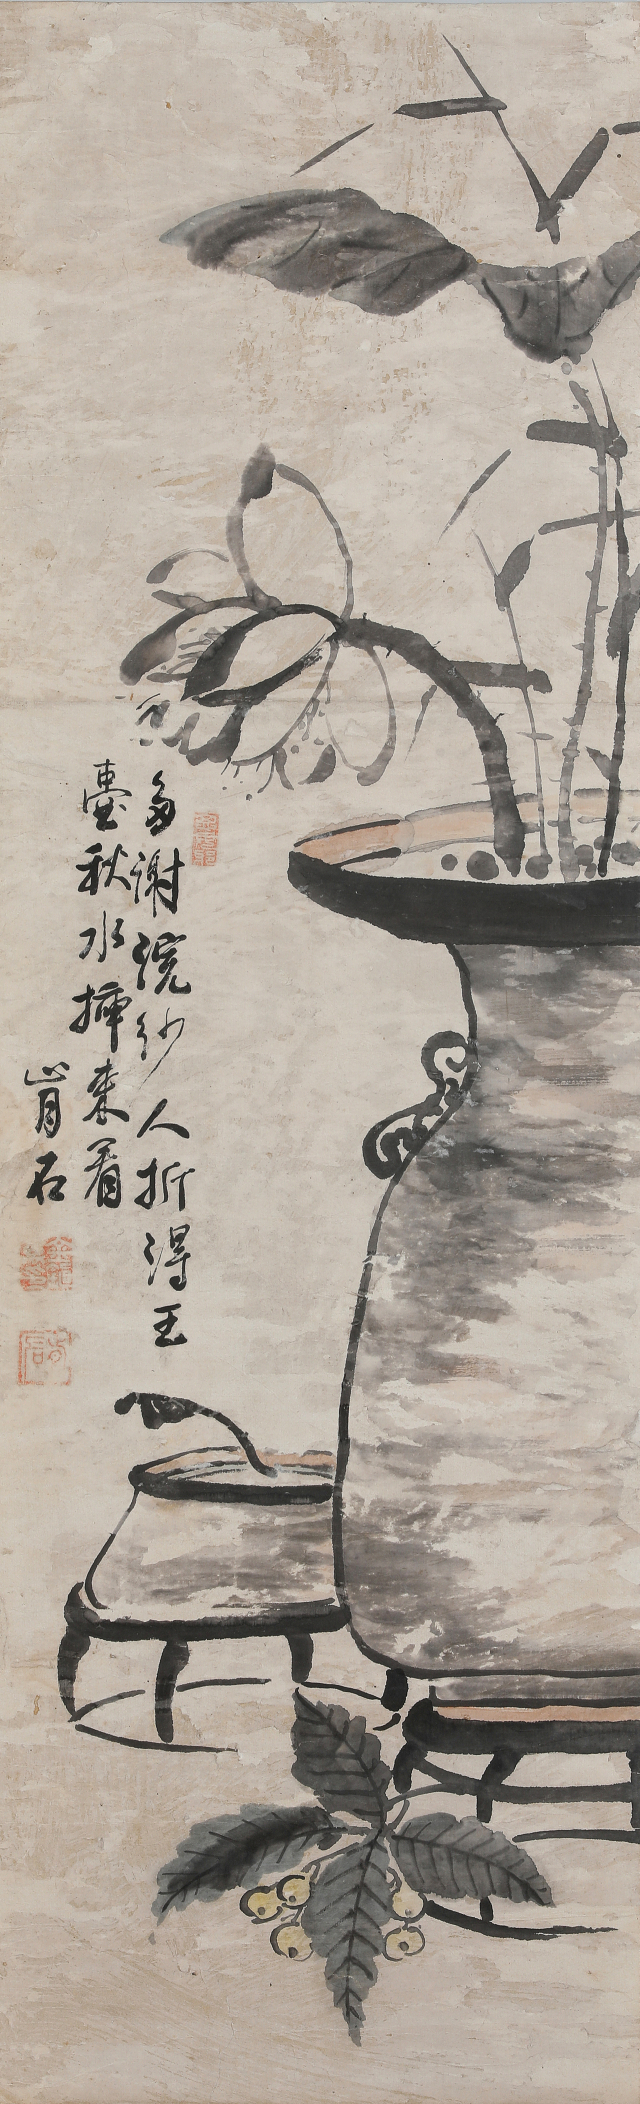 多謝浣紗人折得玉
臺秋水揷來看
肯石